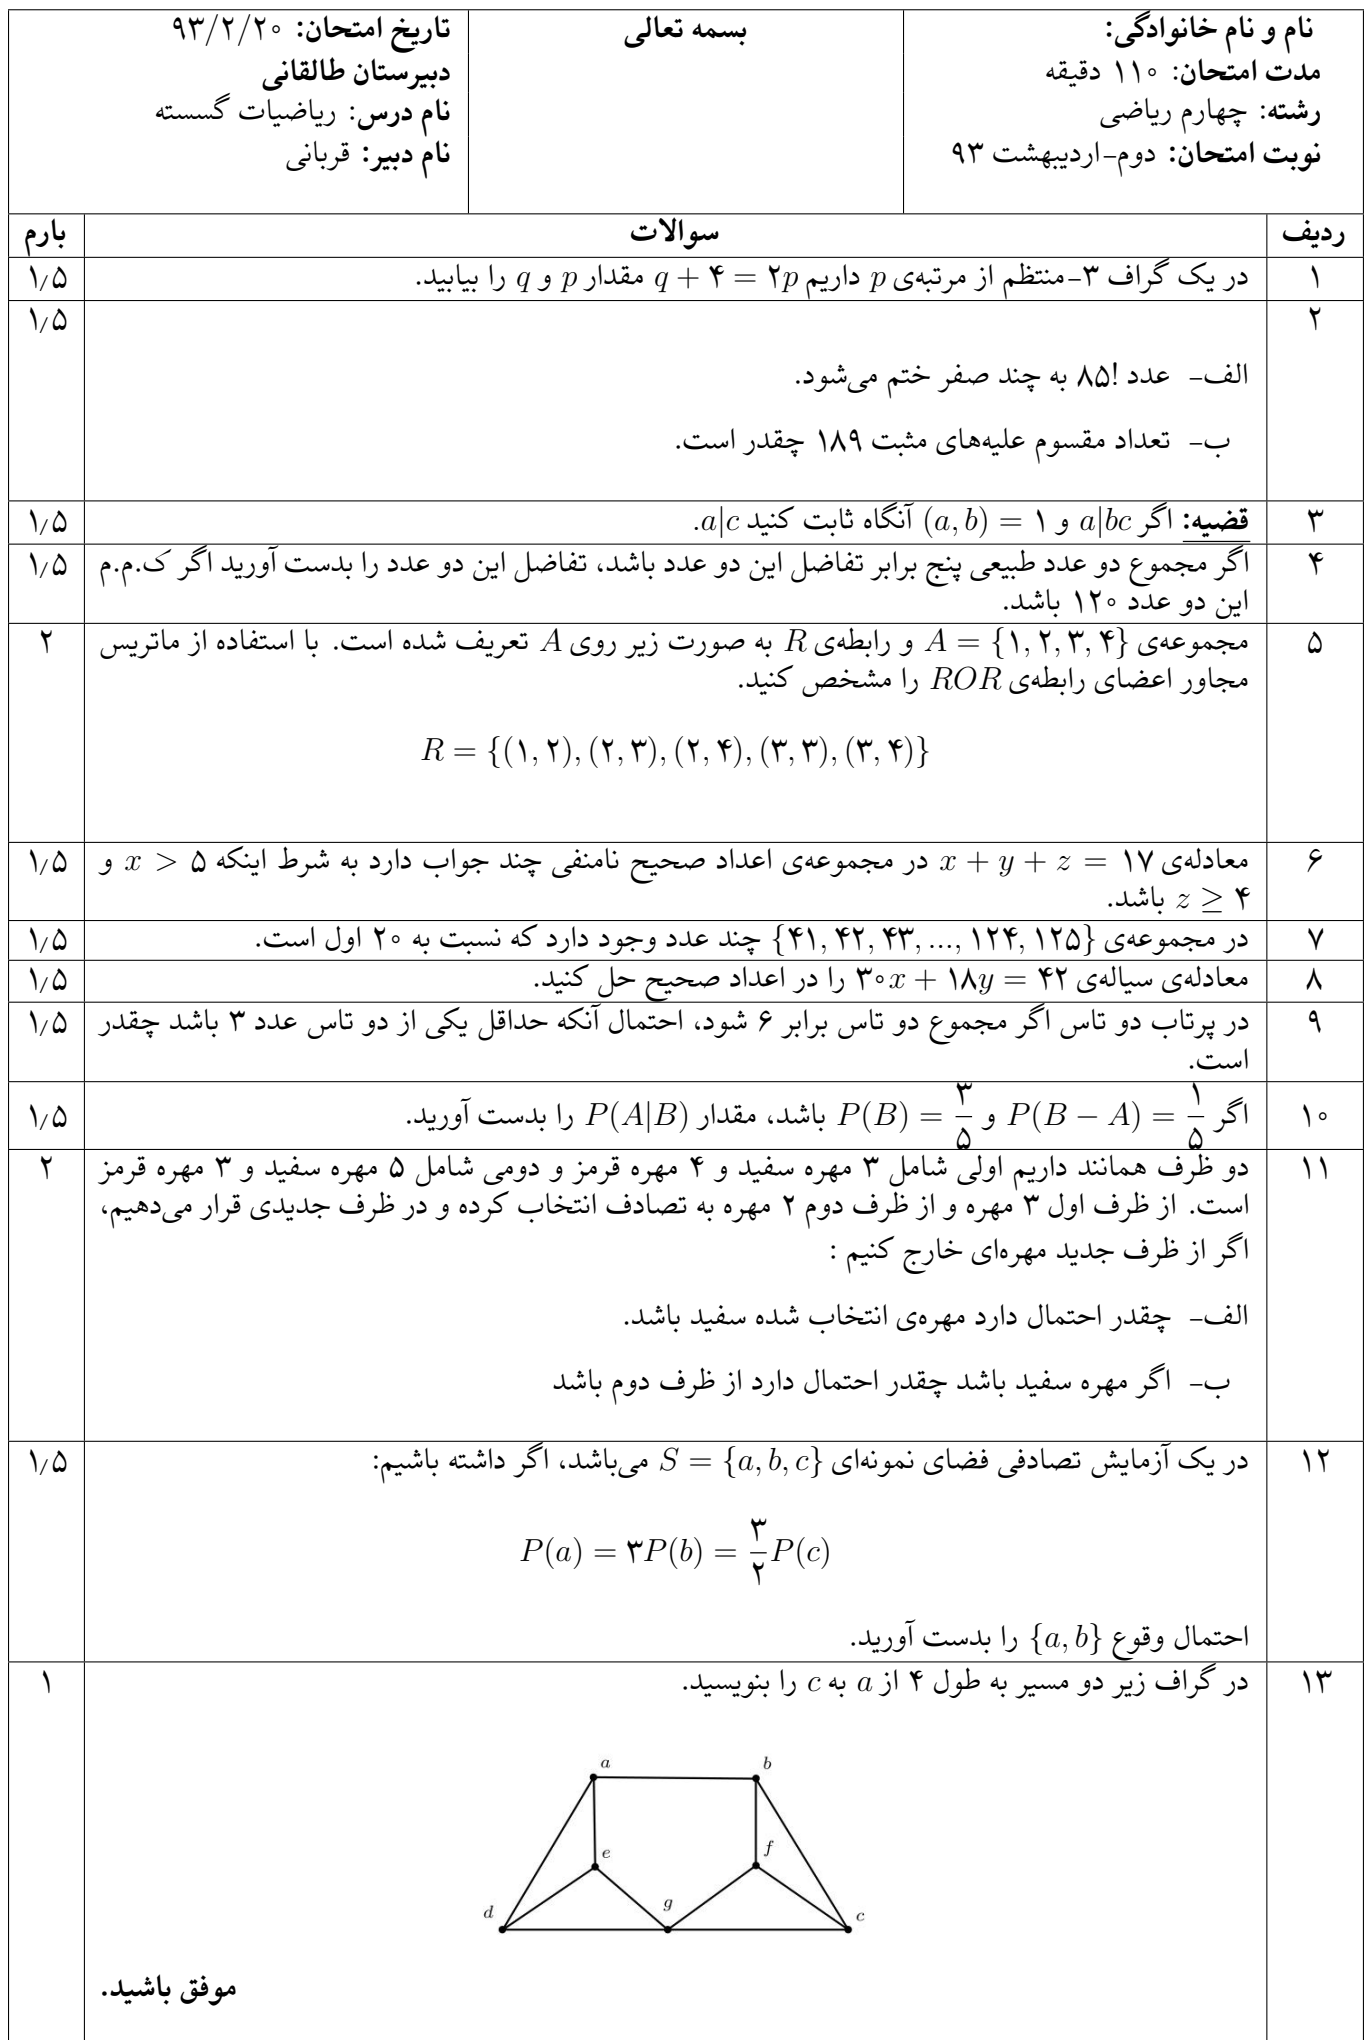 نام و نام خانوادگی:
مدت امتحان: ۱۱۰ دقیقه
رشته: چهارم ریاضی
نوبت امتحان: دوم-اردیبهشت ۹۳
بسمه تعالی
تاریخ امتحان: ۹۳/۲/۲۰
دبیرستان طالقانی
نام درس: ریاضیات گسسته
نام دبیر: قربانی
ردیف سوالات بارم
۱ در یک گراف ۳-منتظم از مرتبه‌ی p داریم q + ۴ = ۲p مقدار p و q را بیابید. ۱٫۵
۲ ۱٫۵
الف- عدد ۸۵! به چند صفر ختم می‌شود.
ب- تعداد مقسوم علیه‌های مثبت ۱۸۹ چقدر است.
۳ قضیه: اگر a|bc و (a, b) = ۱ آنگاه ثابت کنید a|c. ۱٫۵
۴ اگر مجموع دو عدد طبیعی پنج برابر تفاضل این دو عدد باشد، تفاضل این دو عدد را بدست آورید اگر ک.م.م ۱٫۵
این دو عدد ۱۲۰ باشد.
۵ مجموعه‌ی A = {۱, ۲, ۳, ۴} و رابطه‌ی R به صورت زیر روی A تعریف شده است. با استفاده از ماتریس ۲
مجاور اعضای رابطه‌ی ROR را مشخص کنید.
R = {(۱, ۲), (۲, ۳), (۲, ۴), (۳, ۳), (۳, ۴)}
۶ معادله‌ی x + y + z = ۱۷ در مجموعه‌ی اعداد صحیح نامنفی چند جواب دارد به شرط اینکه x > ۵ و ۱٫۵
z ≥ ۴ باشد.
۷ در مجموعه‌ی {۴۱, ۴۲, ۴۳, ..., ۱۲۴, ۱۲۵} چند عدد وجود دارد که نسبت به ۲۰ اول است. ۱٫۵
۸ معادله‌ی سیاله‌ی ۳۰x + ۱۸y = ۴۲ را در اعداد صحیح حل کنید. ۱٫۵
۹ در پرتاب دو تاس اگر مجموع دو تاس برابر ۶ شود، احتمال آنکه حداقل یکی از دو تاس عدد ۳ باشد چقدر ۱٫۵
است.
۱۰ اگر P(B − A) = ۱/۵ و P(B) = ۳/۵ باشد، مقدار P(A|B) را بدست آورید. ۱٫۵
۱۱ دو ظرف همانند داریم اولی شامل ۳ مهره سفید و ۴ مهره قرمز و دومی شامل ۵ مهره سفید و ۳ مهره قرمز ۲
است. از ظرف اول ۳ مهره و از ظرف دوم ۲ مهره به تصادف انتخاب کرده و در ظرف جدیدی قرار می‌دهیم،
اگر از ظرف جدید مهره‌ای خارج کنیم :
الف- چقدر احتمال دارد مهره‌ی انتخاب شده سفید باشد.
ب- اگر مهره سفید باشد چقدر احتمال دارد از ظرف دوم باشد
۱۲ در یک آزمایش تصادفی فضای نمونه‌ای S = {a, b, c} می‌باشد، اگر داشته باشیم: ۱٫۵
P(a) = ۳P(b) = ۳/۲ P(c)
احتمال وقوع {a, b} را بدست آورید.
۱۳ در گراف زیر دو مسیر به طول ۴ از a به c را بنویسید. ۱
a b
e f
d g c
موفق باشید.